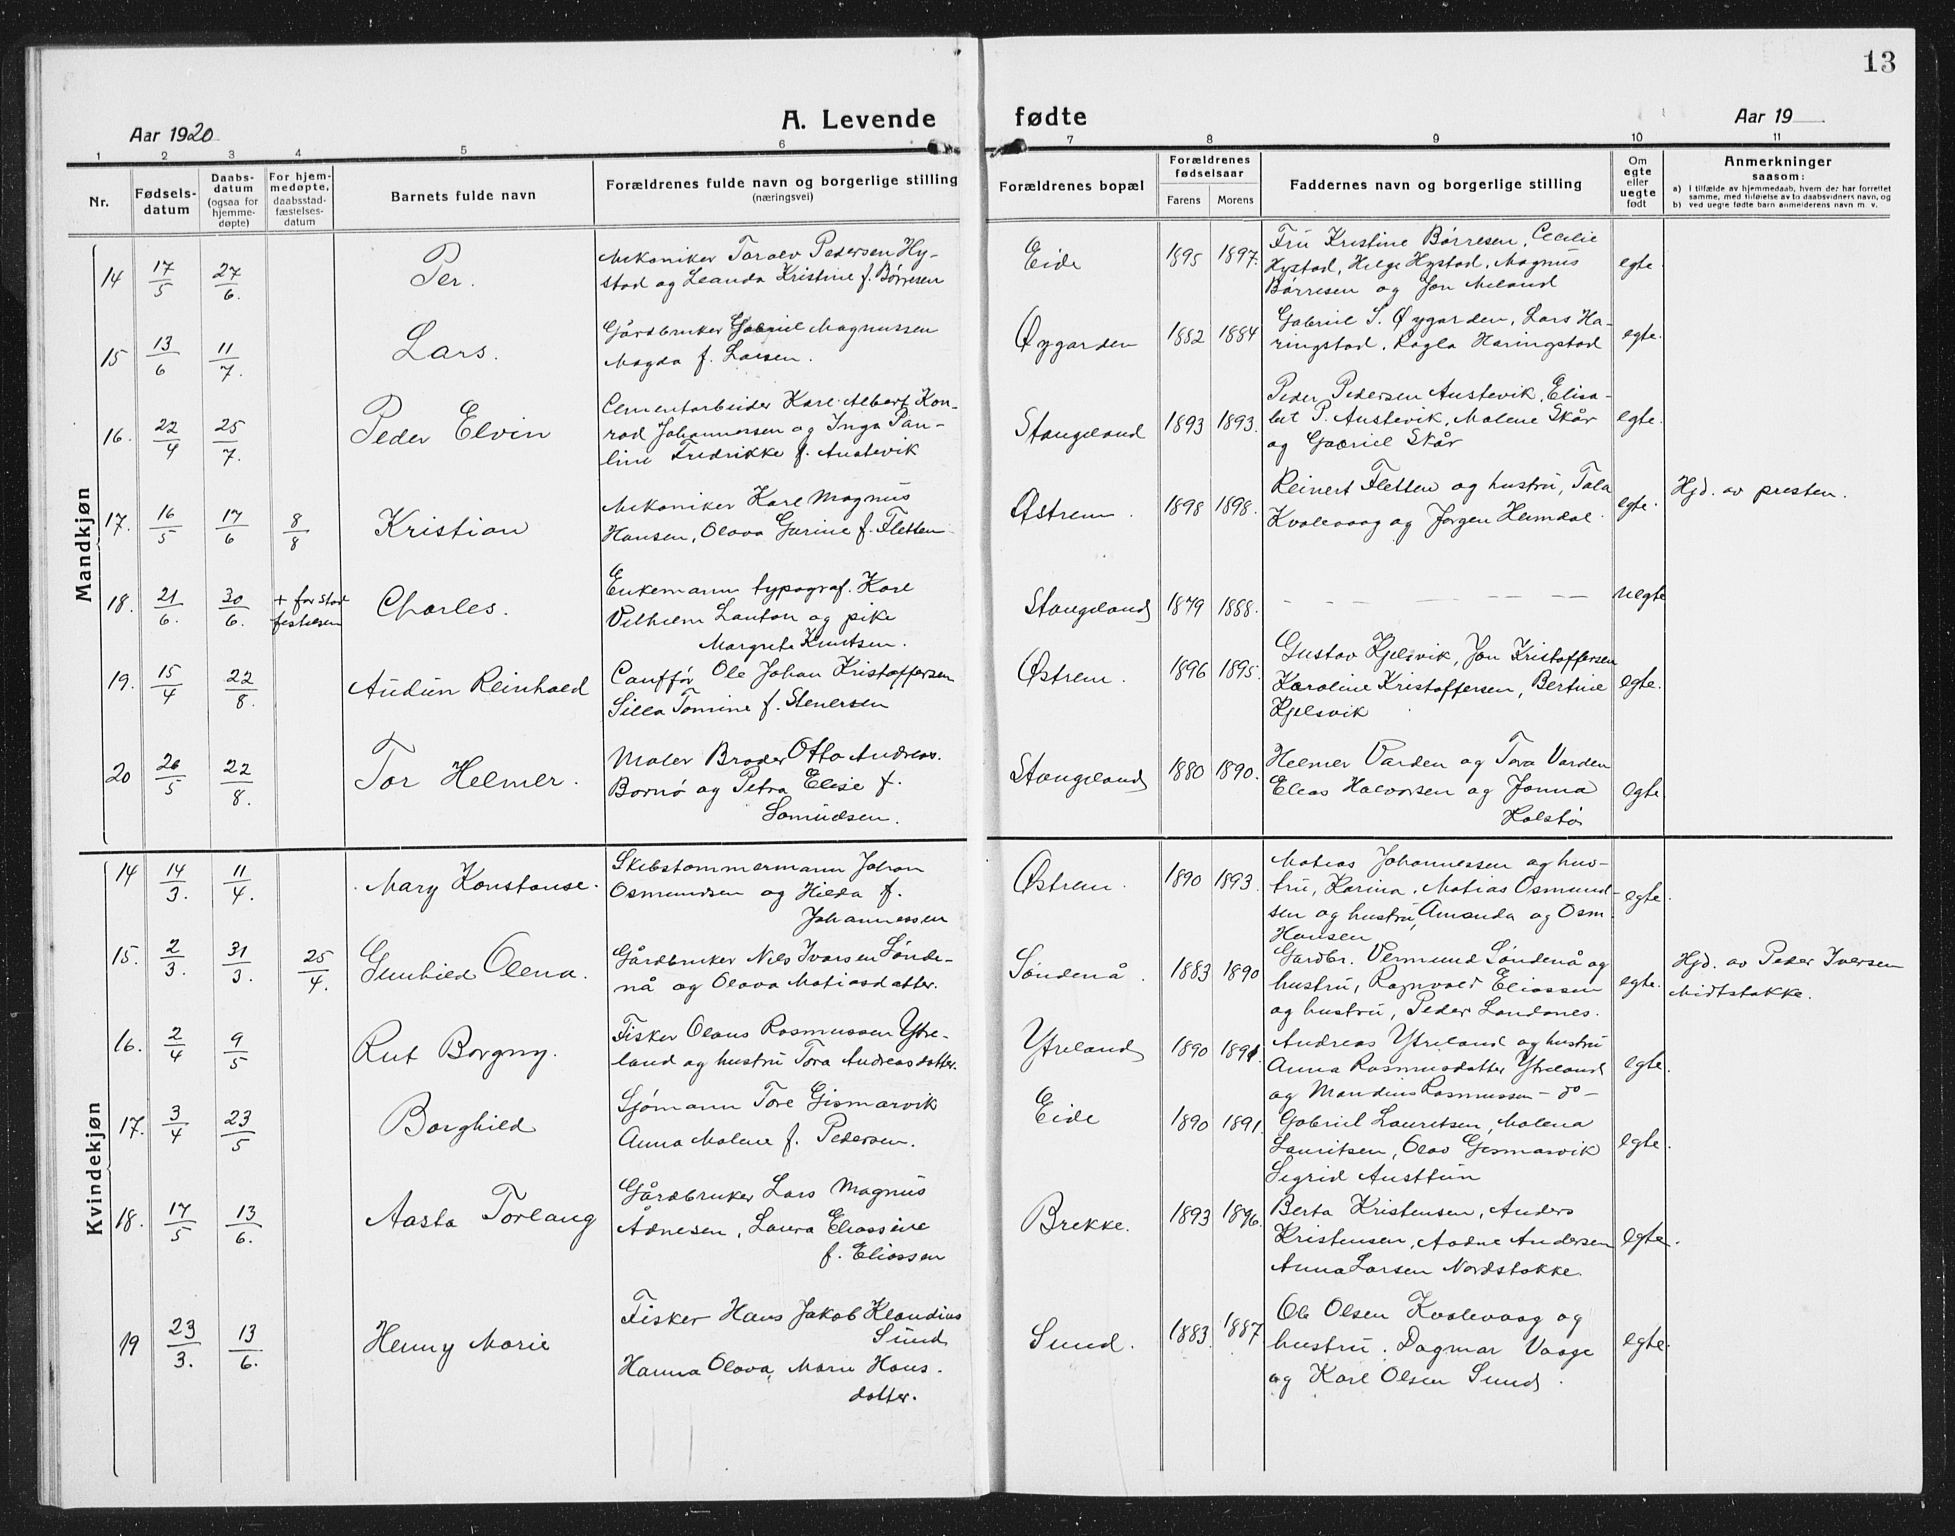 13
Aar 1920
A. Levende fødte
Aar 19
1 2 3 4 5 6 7 8 9 10 11
Nr.
Fødsels-
datum
Daabs-
datum
(ogsaa for
hjemme-
døpte)
For hjem-
medøpte,
daabsstad-
fæstelses-
datum
Barnets fulde navn
Forældrenes fulde navn og borgerlige stilling
(næringsvei)
Forældrenes bopæl
Forældrenes
fødselsaar
Farens Morens
Faddernes navn og borgerlige stilling
Om
egte
eller
uegte
født
Anmerkninger
saasom:
a) I tilfælde av hjemmedaab, hvem der har forrettet
samme, med tilføielse av to daabsvidners navn, og
b) ved uegte fødte barn anmelderens navn m. v.
Mandkjøn
14 17/5 27/6. Per. Eide 1895 1897. egte.
Mekaniker Toralv Pedersen Hy-
stad og Leanda Kristine f. Børresen
Fru Kristine Børresen, Cecilie
Hystad, Helge Hystad, Magnus
Børresen og Jon Meland
15 13/6 11/7. Lars. Øygarden 1882 1884 egte.
Gårdbruker Gabriel Magnussen
Magda f. Larsen.
Gabriel S. Øygarden, Lars Ha-
ringstad, Ragla Haringstad
16. 22/4 25/7. Peder Elvin Stangeland 1893 1893. egte.
Cementarbeider Karl Albert Kon-
rad Johannessen og Inga Pau-
line Fredrikke f. Austevik
Peder Pedersen Austevik, Elisa-
bet P. Austevik, Malene Skår
og Gabriel Skår
17. 16/5 17/6 8/8 Kristian Østrem. 1898 1898. egte.
Mekaniker Karl Magnus
Hansen, Olava Gurine f. Fletten
Reinert Fletten og hustru, Tala
Kvalevaag og Jørgen Hemdal.
Hjd. av presten.
18. 21/6. 30/6. + før stad
festelsen Charles. Stangeland 1879 1888. uegte
Enkemann typograf. Karl
Vilhelm Lauton og pike
Margrete Knutsen.
19. 15/4 22/8. Audun Reinhold Østrem. 1896 1895. egte.
Cauffør Ole Johan Kristoffersen
Silla Tomine f. Stenersen
Gustav Kjelsvik, Jon Kristoffersen
Karoline Kristoffersen, Bertine
Kjelsvik
20 26/5 22/8. Tor Helmer. Stangeland 1880 1890. egte
Maler Broder Otto Andreas.
Bornø og Petra Elise f.
Samuelsen.
Helmer Varden og Tora Varden
Elias Halvorsen og Jonna
Holstø
Kvindekjøn
14 14/3. 11/4. Mary Konstanse. Østrem. 1890 1893. egte.
Skibstømmermann Johan
Osmundsen og Hilda f.
Johannessen
Matias Johannessen og hus-
tru, Karina, Matias Osmund-
sen og hustru, Amanda og Osm.
Hansen
15. 2/3. 31/3. 25/4. Gunhild Olena. Søndenå. 1883 1890 egte.
Gårdbruker Nils Ivarsen Sønde-
nå og Olava Matiasdatter.
Gardbr. Vermund Søndenå og
hustru, Ragnvald Eliassen
og hustru, Peder Landanes.
Hjd. av Peder Iversen
Midtstokke.
16. 2/4 9/5 Rut Borgny. Ytreland 1890 1891. egte.
Fisker Olaus Rasmussen Ytre-
land og hustru Tora Andreasdatter.
Andreas Ytreland og hustru
Anna Rasmusdatter Ytreland
og Mandius Rasmussen – do –
17. 3/4 23/5 Borghild Eide 1890 1891. egte.
Sjømann Tore Gismarvik
Anna Malene f. Pedersen.
Gabriel Lauritsen, Malena
Lauritsen, Olav Gismarvik
Sigrid Austtun
18. 17/5 13/6. Aasta Torlaug Brekke. 1893 1896. egte.
Gårdbruker Lars Magnus
Ådnesen, Laura Eliassine
f. Eliassen
Berta Kristensen, Anders
Kristensen, Aadne Andersen
Anna Larsen Nordstokke.
19 23/3. 13/6. Henny Marie Sund. 1883. 1887 egte.
Fisker Hans Jakob Klaudius
Sund
Hanna Olava, Marie Hans.
datter.
Ole Olsen Kvalevaag og
hustru, Dagmar Vaage
og Karl Olsen Sund.